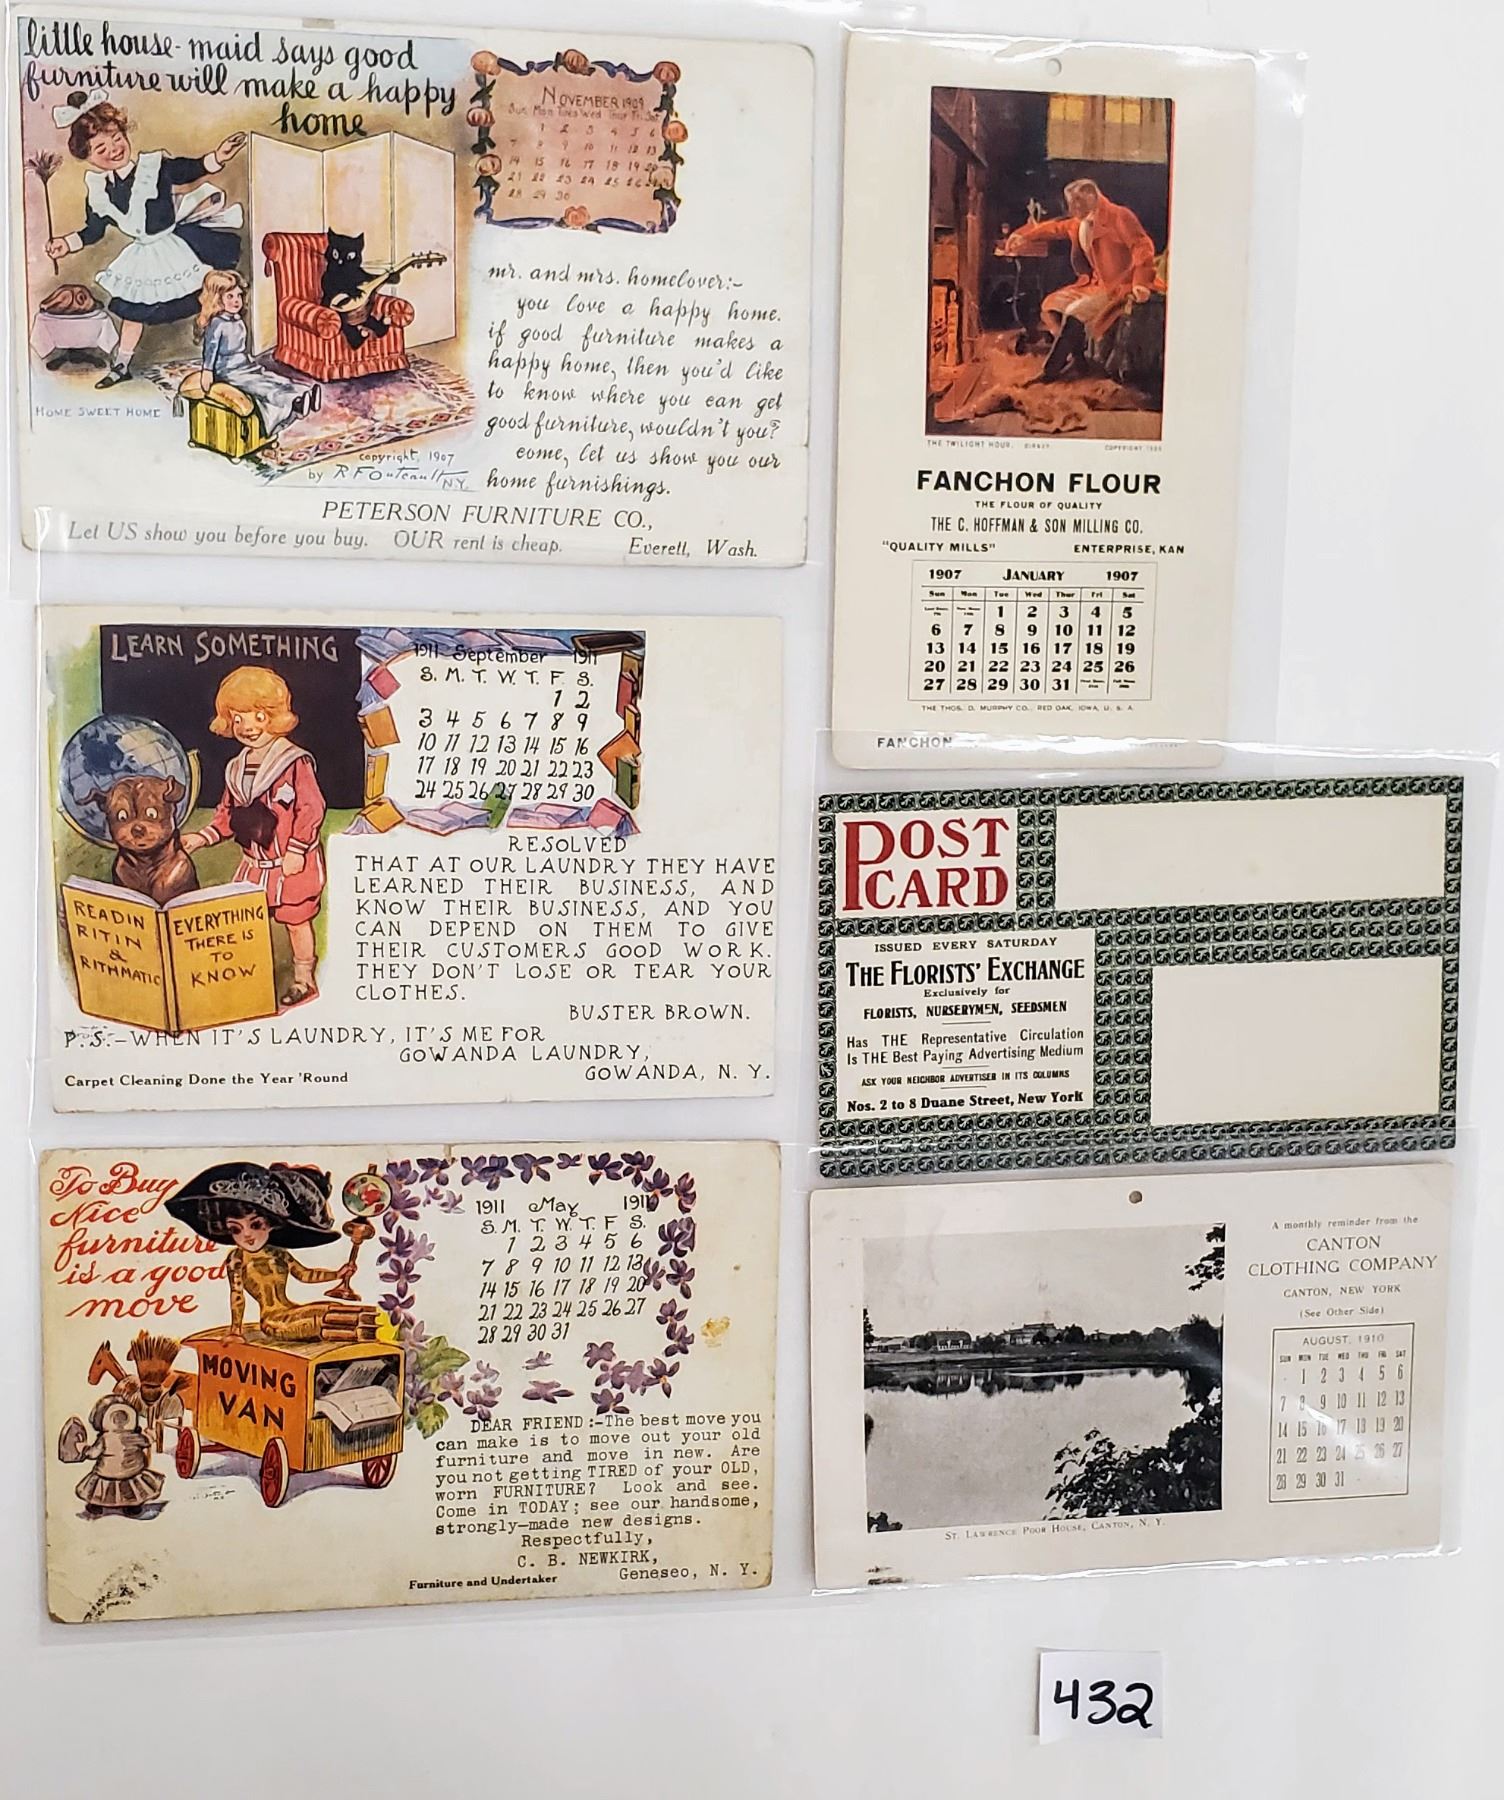 little house-maid says good
furniture will make a happy
home
NOVEMBER 1909
Sun Mon Tues Wed Thur Fri Sat
1 2 3 4 5 6
7 8 9 10 11 12 13
14 15 16 17 18 19 20
21 22 23 24 25 26 27
28 29 30
HOME SWEET HOME
mr. and mrs. homelover:-
you love a happy home.
if good furniture makes a
happy home, then you'd like
to know where you can get
good furniture, wouldn't you?
come, let us show you our
home furnishings.
copyright, 1907
by R F Outcault
N.Y.
PETERSON FURNITURE CO.,
Let US show you before you buy. OUR rent is cheap. Everett, Wash.
THE TWILIGHT HOUR. COPYRIGHT
FANCHON FLOUR
THE FLOUR OF QUALITY
THE C. HOFFMAN & SON MILLING CO.
"QUALITY MILLS" ENTERPRISE, KAN
1907 JANUARY 1907
Sun Mon Tue Wed Thur Fri Sat
1 2 3 4 5
6 7 8 9 10 11 12
13 14 15 16 17 18 19
20 21 22 23 24 25 26
27 28 29 30 31
THE THOS. D. MURPHY CO., RED OAK, IOWA, U. S. A.
FANCHON
LEARN SOMETHING
1911 September 1911
S. M. T. W. T. F. S.
1 2
3 4 5 6 7 8 9
10 11 12 13 14 15 16
17 18 19 20 21 22 23
24 25 26 27 28 29 30
READIN
RITIN
&
RITHMATIC
EVERYTHING
THERE IS
TO
KNOW
RESOLVED
THAT AT OUR LAUNDRY THEY HAVE
LEARNED THEIR BUSINESS, AND
KNOW THEIR BUSINESS, AND YOU
CAN DEPEND ON THEM TO GIVE
THEIR CUSTOMERS GOOD WORK.
THEY DON'T LOSE OR TEAR YOUR
CLOTHES.
BUSTER BROWN.
P.S.—WHEN IT'S LAUNDRY, IT'S ME FOR
GOWANDA LAUNDRY,
GOWANDA, N. Y.
Carpet Cleaning Done the Year 'Round
POST
CARD
ISSUED EVERY SATURDAY
THE FLORISTS' EXCHANGE
Exclusively for
FLORISTS, NURSERYMEN, SEEDSMEN
Has THE Representative Circulation
Is THE Best Paying Advertising Medium
ASK YOUR NEIGHBOR ADVERTISER IN ITS COLUMNS
Nos. 2 to 8 Duane Street, New York
To Buy
Nice
furniture
is a good
move
1911 May 1911
S. M. T. W. T. F. S.
1 2 3 4 5 6
7 8 9 10 11 12 13
14 15 16 17 18 19 20
21 22 23 24 25 26 27
28 29 30 31
MOVING
VAN
DEAR FRIEND:—The best move you
can make is to move out your old
furniture and move in new. Are
you not getting TIRED of your OLD,
worn FURNITURE? Look and see.
Come in TODAY; see our handsome,
strongly-made new designs.
Respectfully,
C. B. NEWKIRK,
Furniture and Undertaker Geneseo, N. Y.
A monthly reminder from the
CANTON
CLOTHING COMPANY
CANTON, NEW YORK
(See Other Side)
AUGUST, 1910
SUN MON TUE WED THU FRI SAT
1 2 3 4 5 6
7 8 9 10 11 12 13
14 15 16 17 18 19 20
21 22 23 24 25 26 27
28 29 30 31
ST. LAWRENCE POOR HOUSE, CANTON, N. Y.
432